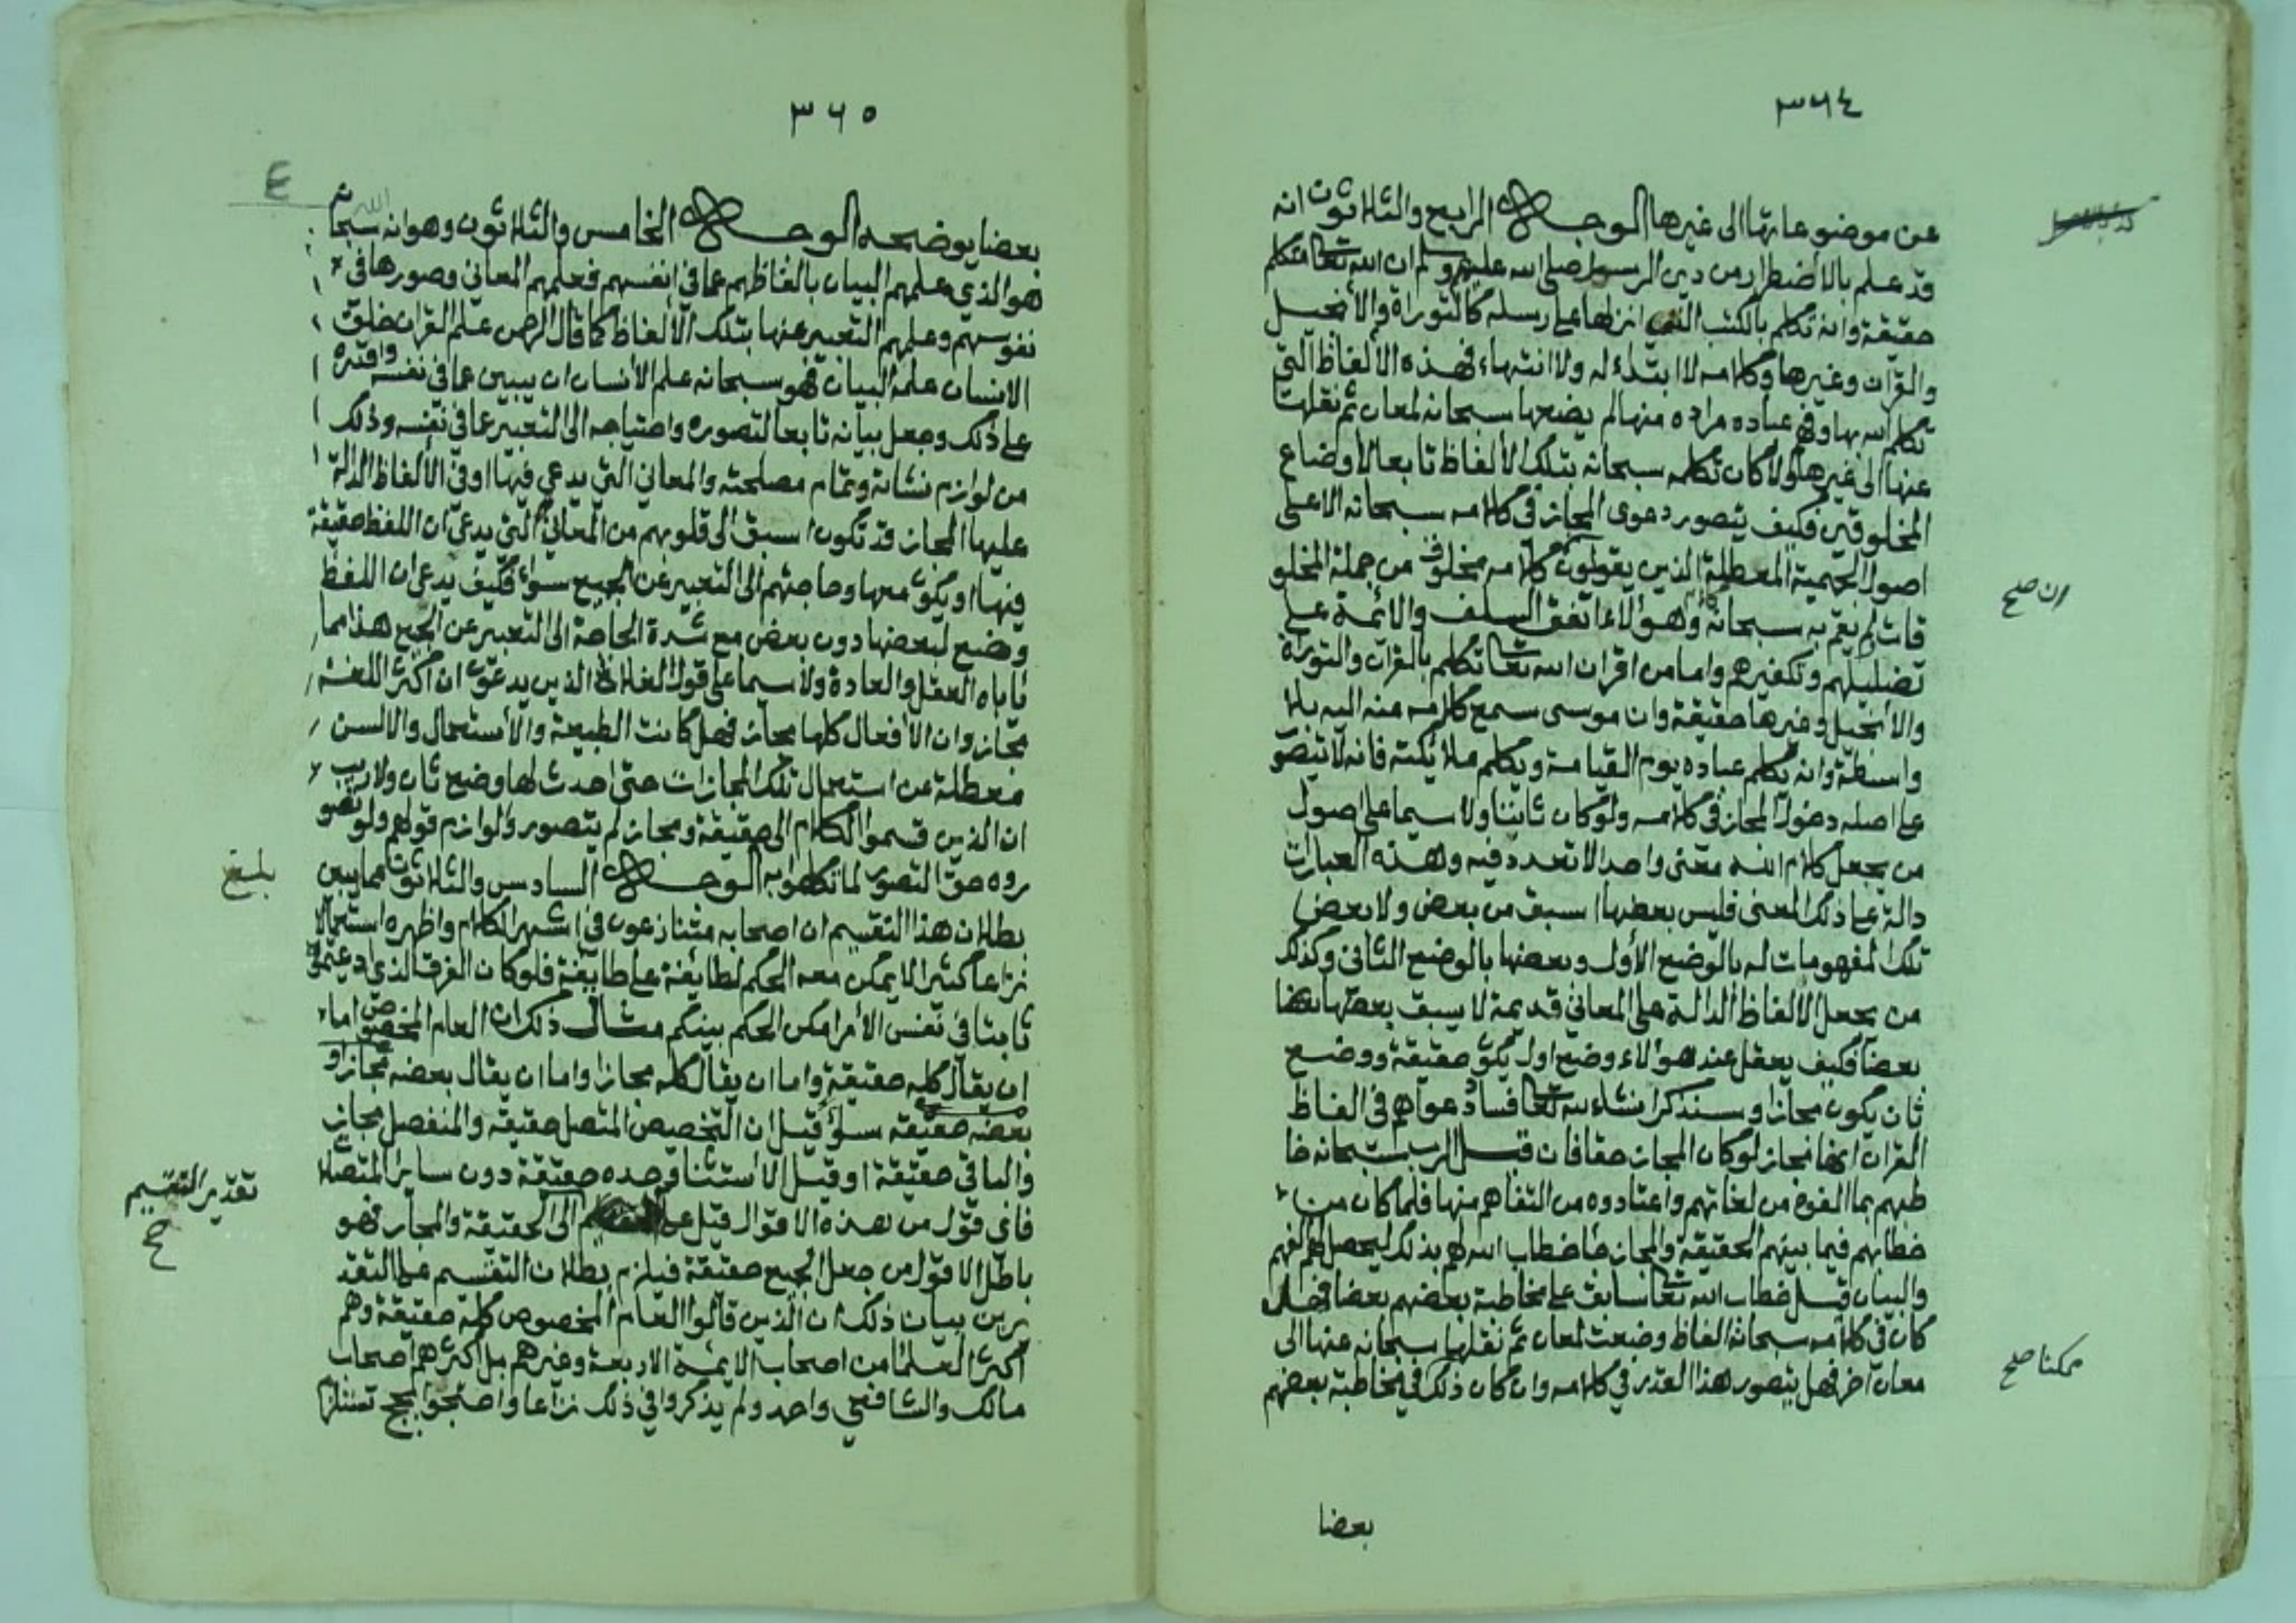 ٣٦٤
عن موضوعاتها الى غيرها الوجه الرابع والثلاثون انه
قد علم بالاضطرار من دين الرسول صلى الله عليه وسلم ان الله تعالى متكلم
حقيقة وانه تكلم بالكتب التي انزلها على رسله كالتوراة والأنجيل
والقرآن وغيرها وكلامه لا ابتداء له ولا انتهاء فهذه الالفاظ التي
تكلم الله بها وفهم عباده مراده منها لم يضعها سبحانه لمعان ثم نقلها
عنها الى غيرها ولا كان تكلمه سبحانه بتلك الألفاظ تابعا لأوضاع
المخلوقين فكيف يتصور دعوى المجاز في كلامه سبحانه الا على
اصول الجهمية المعطلة الذين يقولون كلامه مخلوق من جملة المخلو
قات لم يقم به سبحانه وهؤلاء اتفق السلف والائمة على
تضليلهم وتكفيرهم واما من اقر ان الله تعالى تكلم بالقرآن والتوراة
والأنجيل وغيرها حقيقة وان موسى سمع كلامه منه اليه بلا
واسطة وانه يكلم عباده يوم القيامة ويكلم ملائكته فانه لا يتصو
على اصله دخول المجاز في كلامه ولو كان ثابتا ولا سيما على اصول
من يجعل كلام الله معنى واحدا لا تعدد فيه وهذه العبارات
دالة على ذلك المعنى فليس بعضها اسبق من بعض ولا بعض
تلك المفهومات له بالوضع الأول وبعضها بالوضع الثاني وكذلك
من يجعل الألفاظ الدالة على المعاني قديمة لا يسبق بعضها بعضا
بعضا فكيف يعقل عند هؤلاء وضع اول يكون حقيقة ووضع
ثان يكون مجازا وسنذكر انشاء الله تعالى فساد دعواهم في الفاظ
القرآن انها مجاز لو كان المجاز حقا فان قيل الرب سبحانه خا
طبهم بما الفوه من لغاتهم واعتادوه من التفاهم منها فلما كان من
خطابهم فيما بينهم الحقيقة والمجاز جا خطاب الله لهم بذلك ليحصل لهم الفهم
والبيان قيل خطاب الله تعالى سابق على مخاطبة بعضهم بعضا فهل
كان في كلامه سبحانه الفاظ وضعت لمعان ثم نقلها سبحانه عنها الى
معان آخر فهل يتصور هذا القدر في كلامه وان كان ذلك في مخاطبة بعضهم
بعضا
ان صح
ممكنا صح
٣٦٥
بعضا يوضحه الوجه الخامس والثلاثون وهو انه سبحانه
هو الذي علمهم البيان بالفاظهم عما في انفسهم فعلمهم المعاني وصورها في
نفوسهم وعلمهم التعبير عنها بتلك الألفاظ كما قال الرحمن علم القران خلق
الانسان علمه البيان فهو سبحانه علم الأنسان ان يبين عما في نفسه واقدره
على ذلك وجعل بيانه تابعا لتصوره واحتياجه الى التعبير عما في نفسه وذلك
من لوازم نشاته وتمام مصلحته والمعاني التي يدعي فيها او في الألفاظ الدالة
عليها المجاز قد تكون اسبق الى قلوبهم من المعاني التي يدعي ان اللفظ حقيقة
فيها او يكون معها وحاجتهم الى التعبير عن الجميع سواء فكيف يدعى ان اللفظ
وضع لبعضها دون بعض مع شدة الحاجة الى التعبير عن الجميع هذا مما
تاباه العقل والعادة ولا سيما على قول الغلاة الذين يدعون ان اكثر اللغة
مجاز وان الأفعال كلها مجاز فهل كانت الطبيعة والأستعمال والالسن
معطلة عن استعمال تلك المجازات حتى احدث لها وضع ثان ولا ريب
ان الذين قسموا الكلام الى حقيقة ومجاز لم يتصوروا لوازم قولهم ولو تصو
روه حق التصور لما تكلموا به الوجه السادس والثلاثون مما يبين
بطلان هذا التقسيم ان اصحابه متنازعون في اشهر الكلام واظهره استعمالا
نزاعا كثيرا لا يمكن معه الحكم لطايفة على طايفة فلو كان الفرق الذي ادعيتموه
ثابتا في نفس الأمر امكن الحكم بينكم مثال ذلك ان العام المخصوص اما
ان يقال كله حقيقة واما ان يقال كله مجازا واما ان يقال بعضه مجاز او
بعضه حقيقة سواء قيل ان التخصيص المتصل حقيقة والمنفصل مجاز
والباقي حقيقة او قيل الاستثنا وحده حقيقة دون ساير المتصلا
فاي قول من هذه الاقوال قيل على الى الحقيقة والمجاز فهو
باطل الا قول من جعل الجميع حقيقة فيلزم بطلان التقسيم على التقد
يرين بيان ذلك ان الذين قالوا العام المخصوص كله حقيقة وهم
اكثر العلما من اصحاب الايمة الاربعة وغيرهم بل اكثرهم اصحاب
مالك والشافعي واحمد ولم يذكروا في ذلك نزاعا واحتجوا بحجج
بلغ
تقدير التقسيم
صح